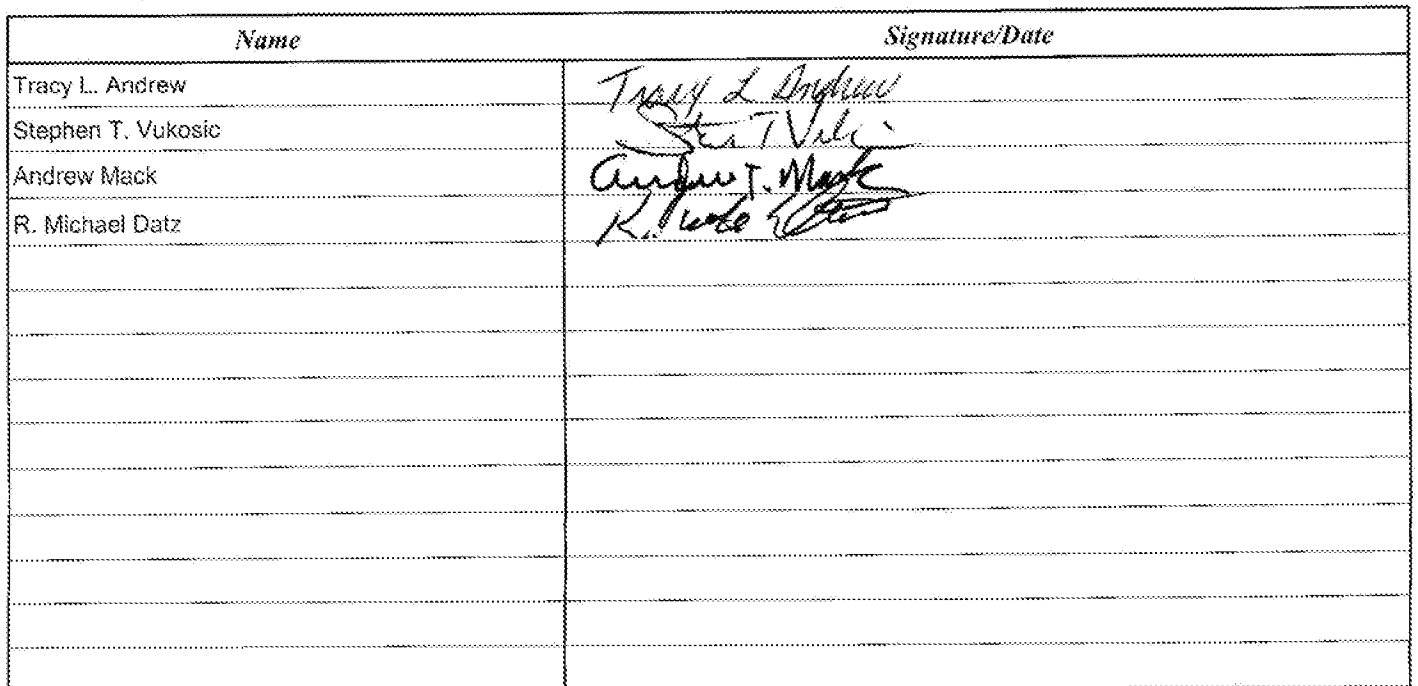 Name Signature/Date
Tracy L. Andrew Tracy L Andrew
Stephen T. Vukosic
Andrew Mack Andrew T. Mack
R. Michael Datz